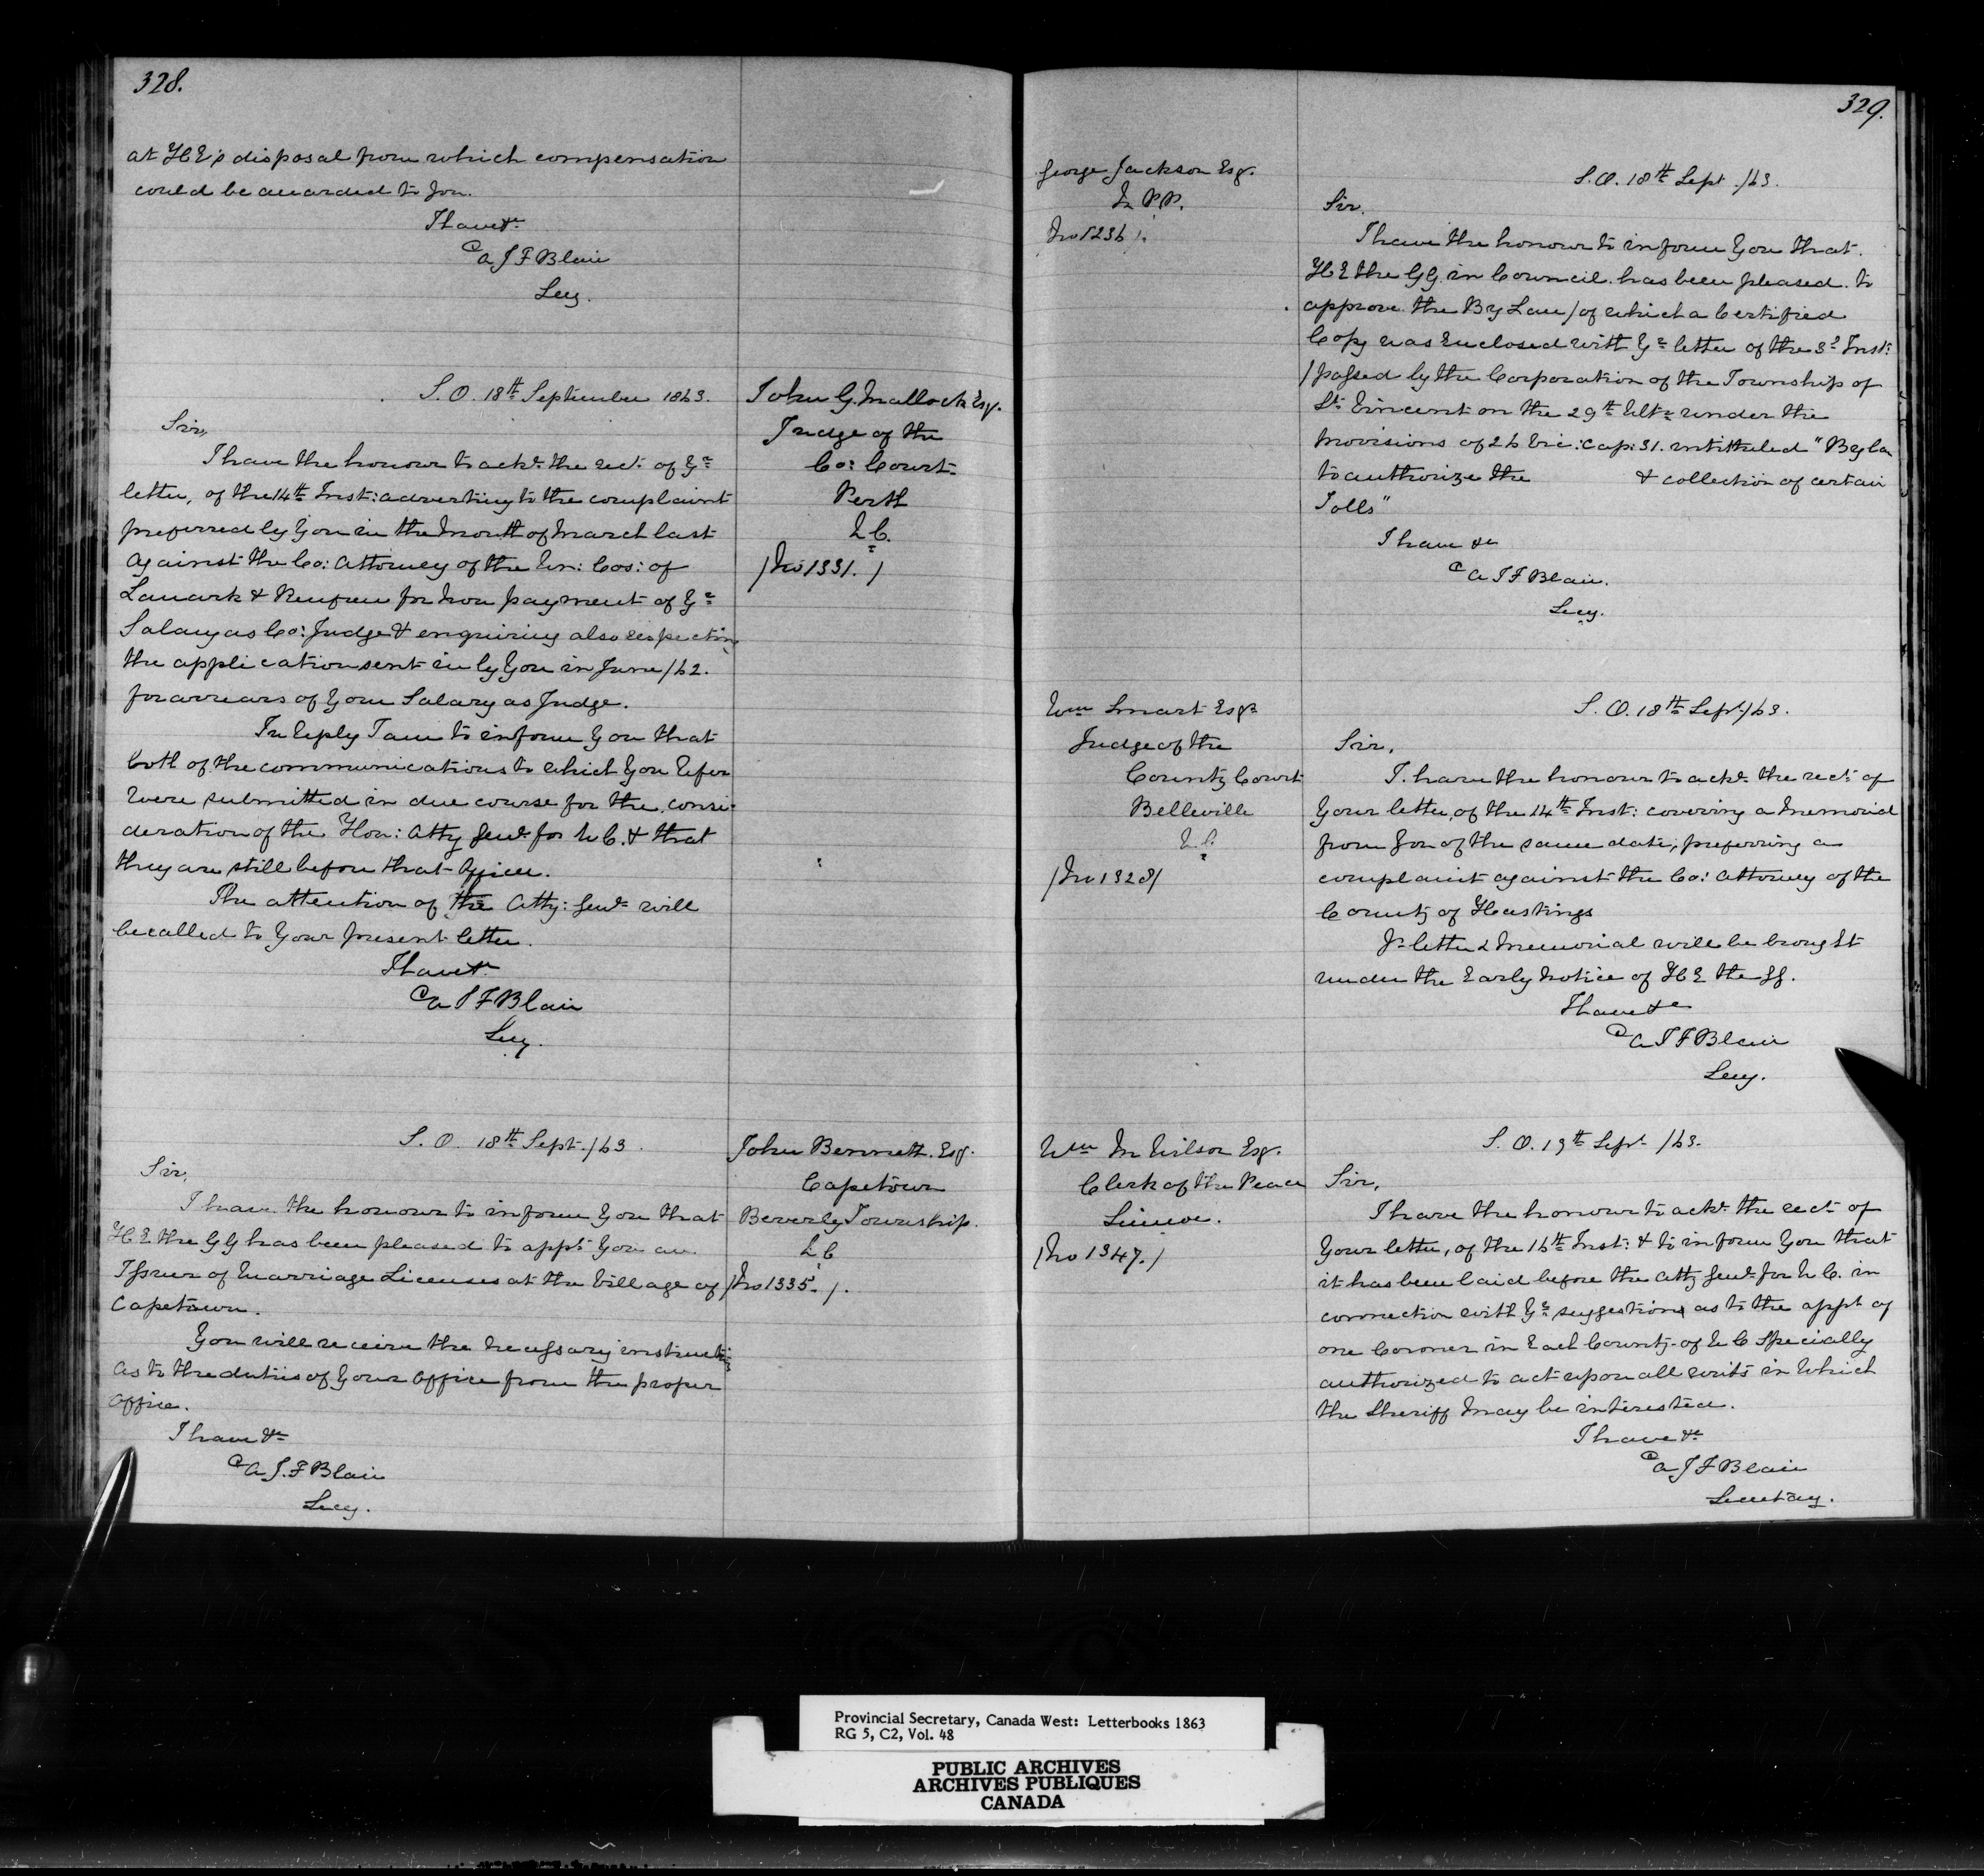 328.
at H.E's disposal from which compensation
could be awarded to you.
I have &c
A J F Blair
Secy.
S. O. 18th September 1863.
John G. Malloch Esq.
Judge of the
Co: Court
Perth
U.C.
/No 1331./
Sir,
I have the honour to ackn. the rect. of Yr
letter, of the 14th Inst: adverting to the complaint
preferred by you in the Month of March last
against the Co: Attorney of the Un: Cos: of
Lanark & Renfrew for Non payment of Yr
Salary as Co: Judge & enquiring also respecting
the application sent in by you in June /62.
for arrears of your Salary as Judge.
In Reply I am to inform you that
both of the communications to which you Refer
Were submitted in due course for the consi-
deration of the Hon: Atty Genl. for U C. & that
they are still before that Officer.
The attention of the Atty: Genl. will
be called to Your present letter.
I have &c
A J F Blair
Secy.
S. O. 18th Sept. /63.
John Bennett. Esq.
Capetown
Beverly Township.
U C
/No 1335./.
Sir,
I have the honour to inform you that
H. E the G G has been pleased to appt. you an
Issuer of Marriage Licenses at the Village of
Capetown.
You will receive the Necessary instructions
as to the duties of Your Office from the proper
Office.
I have &c
A. J. F Blair
Secy.
329.
George Jackson Esq.
M P.P.
No 1236/.
S. O. 18th Sept. /63.
Sir.
I have the honour to inform you that
H E the G G. in Council has been pleased to
approve the By Law / of which a Certified
Copy was Enclosed with Yr letter of the 3d Inst:
/ passed by the Corporation of the Township of
St. Vincent on the 29th Ulto under the
provisions of 26 Vic: Cap: 31. intituled "By La
to authorize the & collection of certain
Tolls"
I have &c
A J F Blair.
Secy.
Wm Smart Esqr
Judge of the
County Court
Belleville
U.C.
/No 1328/
S. O. 18th Sept. /63.
Sir,
I have the honour to ackn. the rect. of
Your letter, of the 14th Inst: covering a Memorial
from you of the same date, preferring a
complaint against the Co: Attorney of the
County of Hastings
Yr letter & Memorial will be brought
under the Early Notice of H E the GG.
I have &c
A J F Blair
Secy.
Wm M Wilson Esq.
Clerk of the Peace
Simcoe.
/No 1347./
S. O. 19th Sept. /63.
Sir,
I have the honour to ackn. the rect. of
Your letter, of the 16th Inst: & to inform you that
it has been laid before the Atty Genl. for U C. in
connection with Yr suggestions as to the appt. of
one Coroner in Each County of U C Specially
authorized to act upon all writs in Which
the Sheriff May be interested.
I have &c
A J F Blair
Secretary.
Provincial Secretary, Canada West: Letterbooks 1863
RG 5, C2, Vol. 48
PUBLIC ARCHIVES
ARCHIVES PUBLIQUES
CANADA